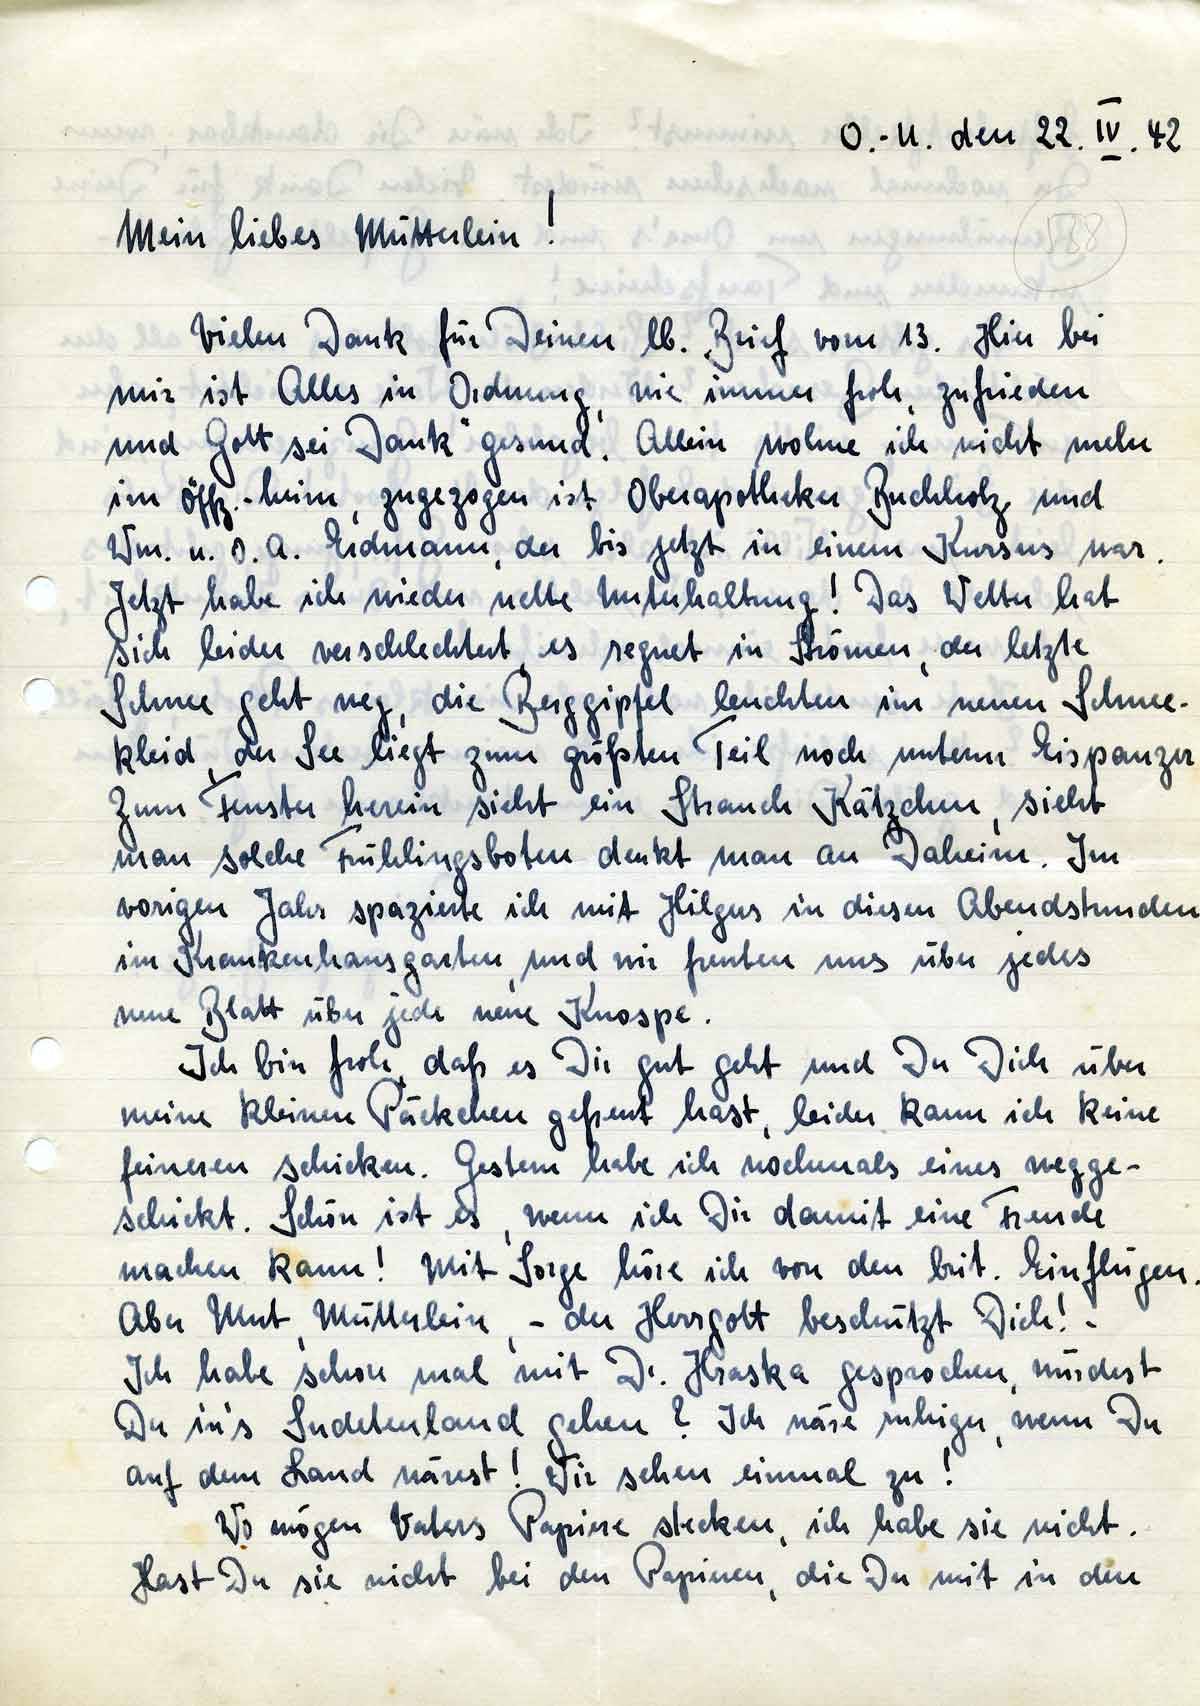 O.-U. den 22. IV. 42
188
Mein liebes Mütterlein!
Vielen Dank für Deinen lb. Brief vom 13. Hier bei
mir ist Alles in Ordnung, wie immer froh, zufrieden
und "Gott sei Dank" gesund. Allein wohne ich nicht mehr
im Offz.-heim, zugezogen ist Oberapotheker Buchholz und
Wm. u. O. A. Erdmann, der bis jetzt in einem Kursus war.
Jetzt habe ich wieder nette Unterhaltung! Das Wetter hat
sich leider verschlechtert, es regnet in Strömen, der letzte
Schnee geht weg, die Berggipfel leuchten im neuen Schnee-
kleid, der See liegt zum größten Teil noch unterm Eispanzer
Zum Fenster herein sieht ein Strauch Kätzchen, sieht
man solche Frühlingsboten denkt man an Daheim. Im
vorigen Jahr spazierte ich mit Hilgers in diesen Abendstunden
im Krankenhausgarten, und wir freuten uns über jedes
neue Blatt über jede neue Knospe.
Ich bin froh, daß es Dir gut geht und Du Dich über
meine kleinen Päckchen gefreut hast, leider kann ich keine
feineren schicken. Gestern habe ich nochmals eines wegge-
schickt. Schön ist es, wenn ich Dir damit eine Freude
machen kann! Mit Sorge höre ich von den brit. Einflügen.
Aber Mut, Mütterlein, - der Herrgott beschützt Dich! -
Ich habe schon mal mit Dr. Hraska gesprochen, würdest
Du in's Sudetenland gehen? Ich wäre ruhiger, wenn Du
auf dem Land wärest! Wir sehen einmal zu!
Wo mögen Vaters Papiere stecken, ich habe sie nicht.
Hast Du sie nicht bei den Papieren, die Du mit in den